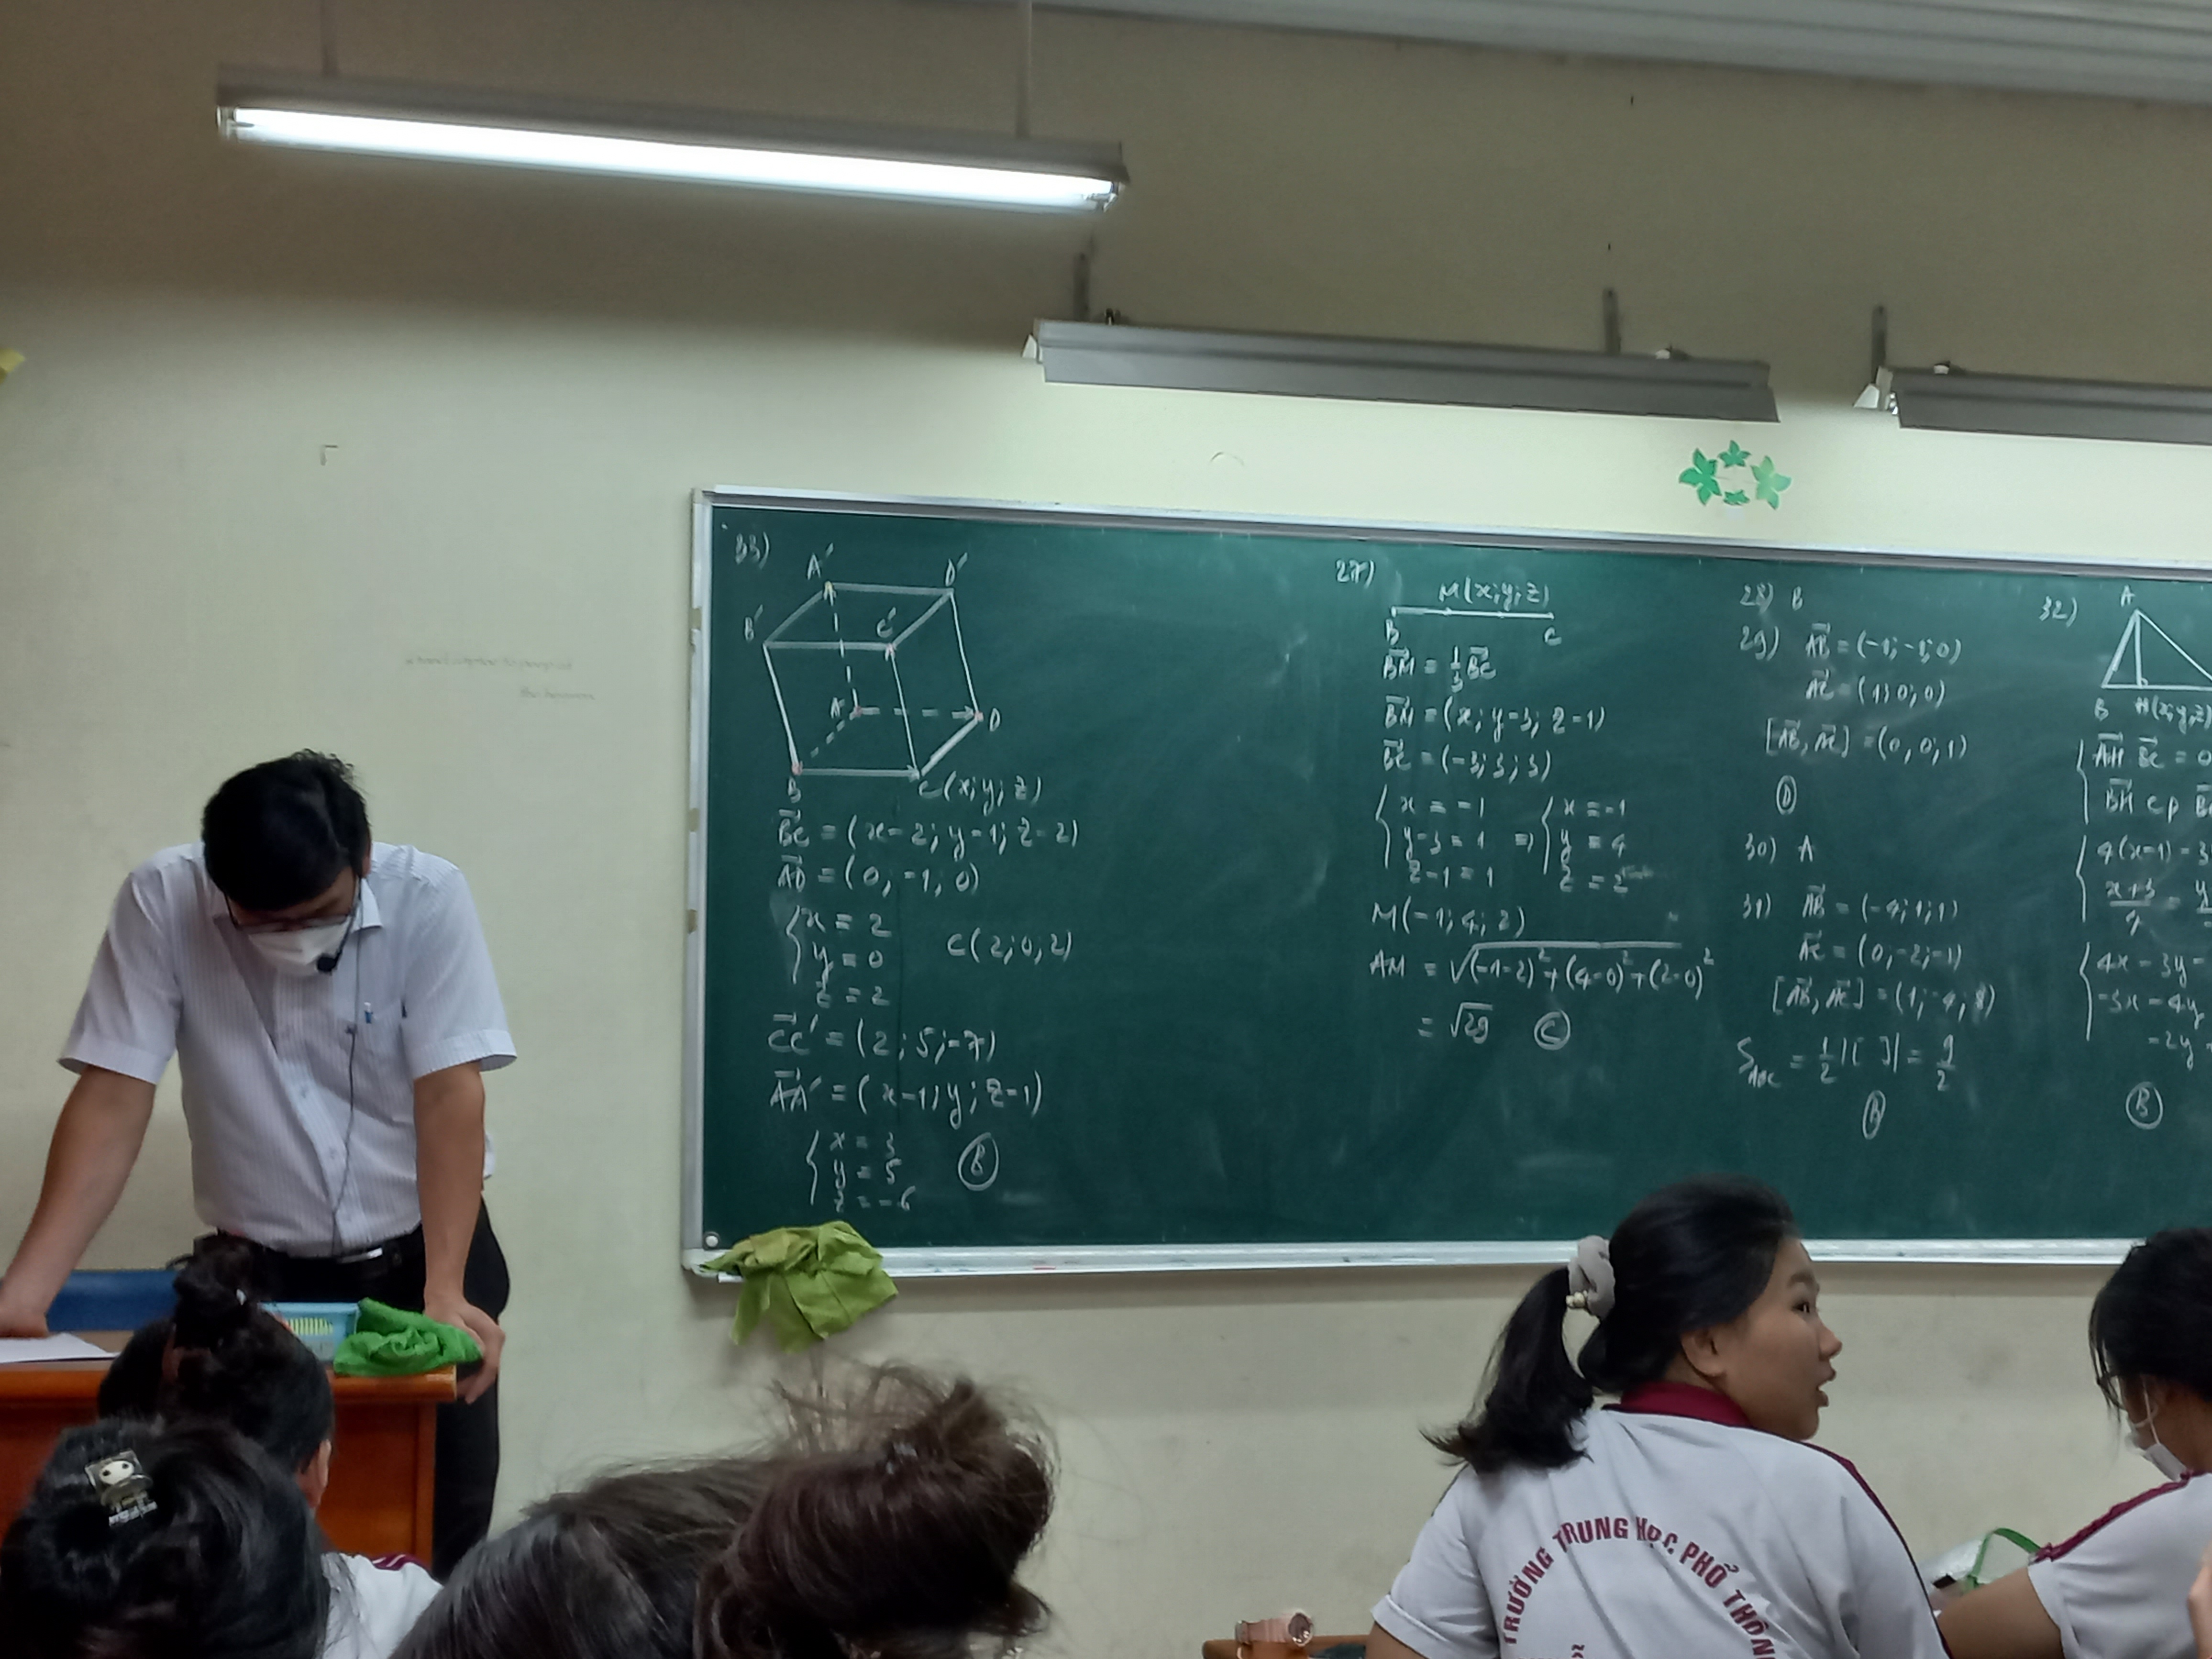 33)
A' D'
B' C'
A D
B C(x; y; z)
BC = (x-2; y-1; z-2)
AD = (0; -1; 0)
x = 2
y = 0 C(2; 0; 2)
z = 2
CC' = (2; 5; -7)
AA' = (x-1; y; z-1)
x = 3
y = 5 B
z = -6
27)
M(x; y; z)
B C
BM = 1/3 BC
BM = (x; y-3; z-1)
BC = (-3; 3; 3)
x = -1 x = -1
y-3 = 1 => y = 4
z-1 = 1 z = 2
M(-1; 4; 2)
AM = √(-1-2)² + (4-0)² + (2-0)²
= √29 C
28) B
29) AB = (-1; -1; 0)
AC = (1; 0; 0)
[AB, AC] = (0, 0, 1)
D
30) A
31) AB = (-4; 1; 1)
AC = (0; -2; -1)
[AB, AC] = (1; -4; 8)
S ABC = 1/2 |[ ]| = 9/2
B
32) A
B H(x; y; z)
AH BC = 0
BH cp
4(x-1) - 3
x+3/4 =
4x - 3y -
-3x - 4y
-2y
B
TRƯỜNG TRUNG HỌC PHỔ THÔNG